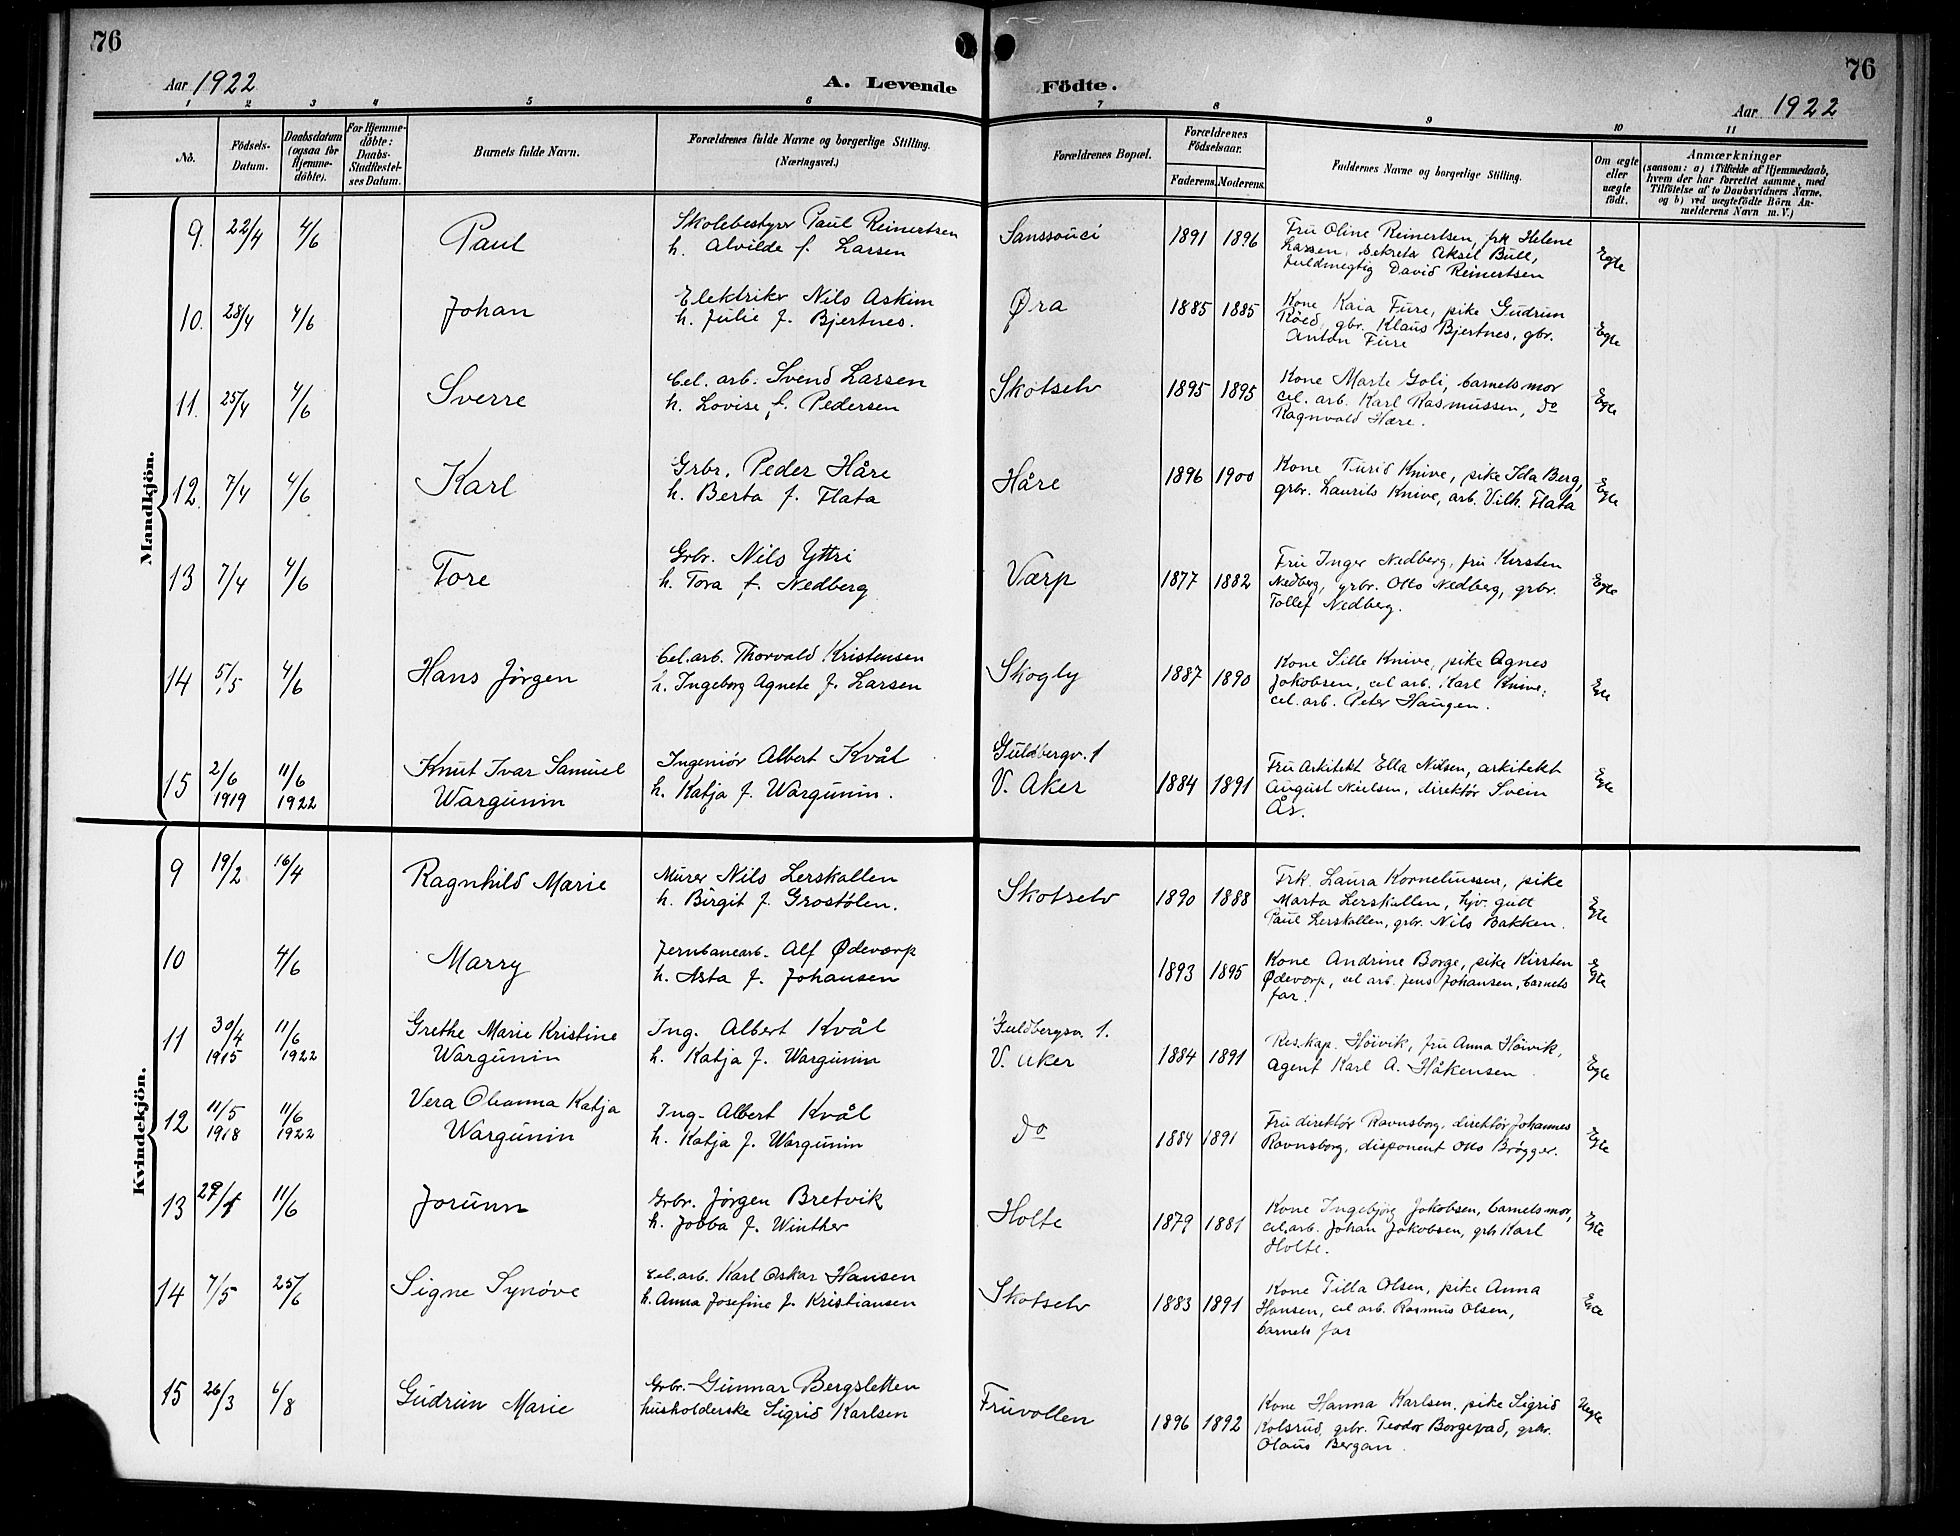 76
Aar 1922
A. Levende
Födte.
76
Aar 1922
1 2 3 4 5 6 7 8 9 10 11
No.
Födsels-
Datum.
Daabsdatum
(ogsaa for
Hjemme-
döbte).
For Hjemme-
döbte:
Daabs-
Stadfæstel-
ses Datum.
Barnets fulde Navn.
Forældrenes fulde Navne og borgerlige Stilling.
(Næringsvei.)
Forældrenes Bopæl.
Forældrenes
Födselsaar.
Faderens. Moderens.
Faddernes Navne og borgerlige Stilling.
Om ægte
eller
uægte
födt.
Anmærkninger
(saasom: a) i Tilfælde af Hjemmedaab,
hvem der har forrettet samme, med
Tilföielse af to Daabsvidners Navne,
og b) ved uægtefödte Börn An-
melderens Navn m. V.)
Mandkjön.
9. 22/4 4/6 Paul
Skolebestyrer Paul Reinertsen
h. Alvilde f. Larsen
Sanssouci 1891 1896
Fru Oline Reinertsen, frk Helene
Larsen, sekretær Aksel Bull,
fuldmegtig David Reinertsen
Egte
10. 28/4 4/6 Johan
Elektriker Nils Askim
h. Julie f. Bjertnes.
Øra 1885 1885
Kone Kaia Fure, pike Gudrun
Röed, gbr. Klaus Bjertnes, gbr.
Anton Fure
Egte
11. 25/4 4/6 Sverre
Cel. arb. Svend Larsen
h. Lovise f. Pedersen
Skotselv 1895 1895
Kone Marte Goli, barnets mor
cel. arb. Karl Rasmussen, do
Ragnvald Hære.
Egte
12. 7/4 4/6 Karl
Grbr. Peder Håre
h. Berta f. Flata
Håre 1896 1900
Kone Turid Knive, pike Ida Berg,
grbr. Laurits Knive, arb. Vilh. Flata
Egte
13 7/4 4/6 Tore
Grbr. Nils Yttri
h. Tora f. Nedberg
Værp 1877 1882
Fru Inger Nedberg, fru Kirsten
Nedberg, grbr. Otto Nedberg, grbr.
Tollef Nedberg.
Egte
14 5/5 4/6 Hans Jörgen
Cel. arb. Thorvald Kristensen
h. Ingeborg Agnete f. Larsen
Skogly 1887 1890
Kone Sille Knive, pike Agnes
Jakobsen, cel arb. Karl Knive,
cel. arb. Peter Haugen.
Egte
15 2/6 1919 11/6 1922
Knut Ivar Samuel
Wargunin
Ingeniör Albert Kvål
h. Katja f. Wargunin.
Guldbergv. 1
V. Aker 1884 1891
Fru Arkitekt Ella Nilsen, arkitekt
August Nielsen, direktör Svein
Ås.
Egte
Kvindekjön.
9 19/2 16/4 Ragnhild Marie
Murer Nils Lerskallen
h. Birgit f. Grostölen.
Skotselv 1890 1888
Frk. Laura Korneliussen, pike
Marta Lerskallen, hjv. gutt
Paul Lerskallen, grbr. Nils Bakken.
Egte
10 4/6 Marry
Jernbanearb. Alf Ødeværp
h. Asta f. Johansen
1893 1895
Kone Andrine Borge, pike Kirsten
Ødeværp, cel arb. Jens Johansen, barnets
far.
Egte
11 30/4 1915 11/6 1922
Grethe Marie Kristine
Wargunin
Ing. Albert Kvål
h. Katja f. Wargunin
Guldbergsv. 1.
V. Aker 1884 1891
Res.kap. Höivik, fru Anna Höivik,
agent Karl A. Håkensen
Egte
12 11/5 1918 11/6 1922
Vera Oleanna Katja
Wargunin
Ing. Albert Kvål
h. Katja f. Wargunin
do 1884 1891
Fru direktör Ravnsborg, direktör Johannes
Ravnsborg, disponent Otto Brögger.
Egte
13 11/6 Jorunn
Grbr. Jörgen Bretvik
h. Jobba f. Winther
Holte 1879 1881
Kone Ingebjörg Jakobsen, barnets mor,
cel. arb. Johan Jakobsen, grb Karl
Holte.
Egte
14 7/5 25/6 Signe Synöve
Cel. arb. Karl Oskar Hansen
h. Anna Josefine f. Kristiansen
Skotselv 1883 1891
Kone Tilla Olsen, pike Anna
Hansen, cel arb. Rasmus Olsen,
barnets far
Egte
15 26/3 6/8 Gudrun Marie
Grbr. Gunnar Bergsletten
husholderske Sigrid Karlsen
Fruvollen 1896 1892
Kone Hanna Karlsen, pike Sigrid
Kolsrud, grbr. Teodor Borgevad, grbr.
Olaus Bergan.
Uegte